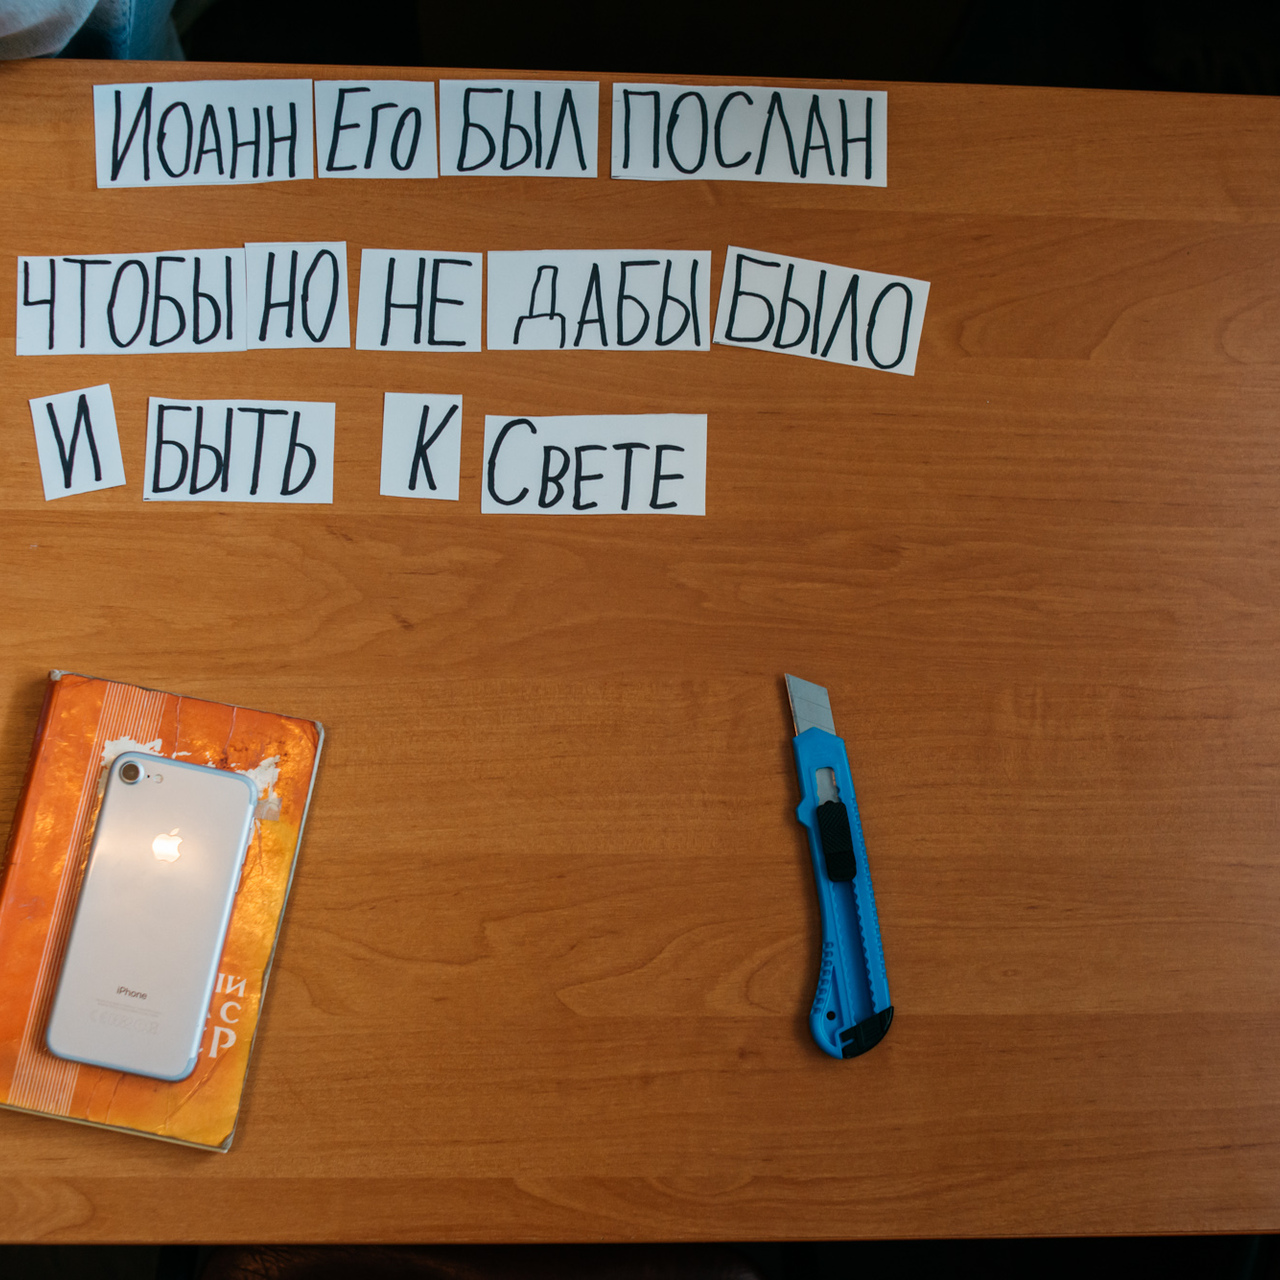 Иоанн Его был послан
чтобы но не дабы было
и быть к Свете
iPhone